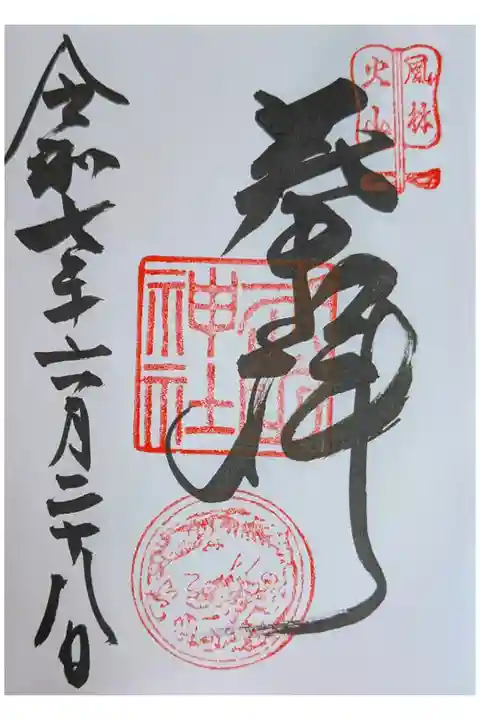 風林
火山
奉拝
神社
令和七年六月二十八日